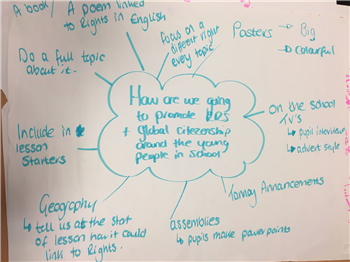 A book/ A poem linked
to Rights in English
Focus on a
different right
every topic
Posters → Big
→ Colourful
Do a full topic
about it.
How are we going
to promote
+ global citizenship
around the young
people in school
On the school
TV's
↳ pupil interviews
↳ advert style
Include in
lesson
Starters
Geography
↳ tell us at the start
of lesson how it could
link to Rights.
assemblies
↳ pupils make powerpoints
Tannoy Annoncements